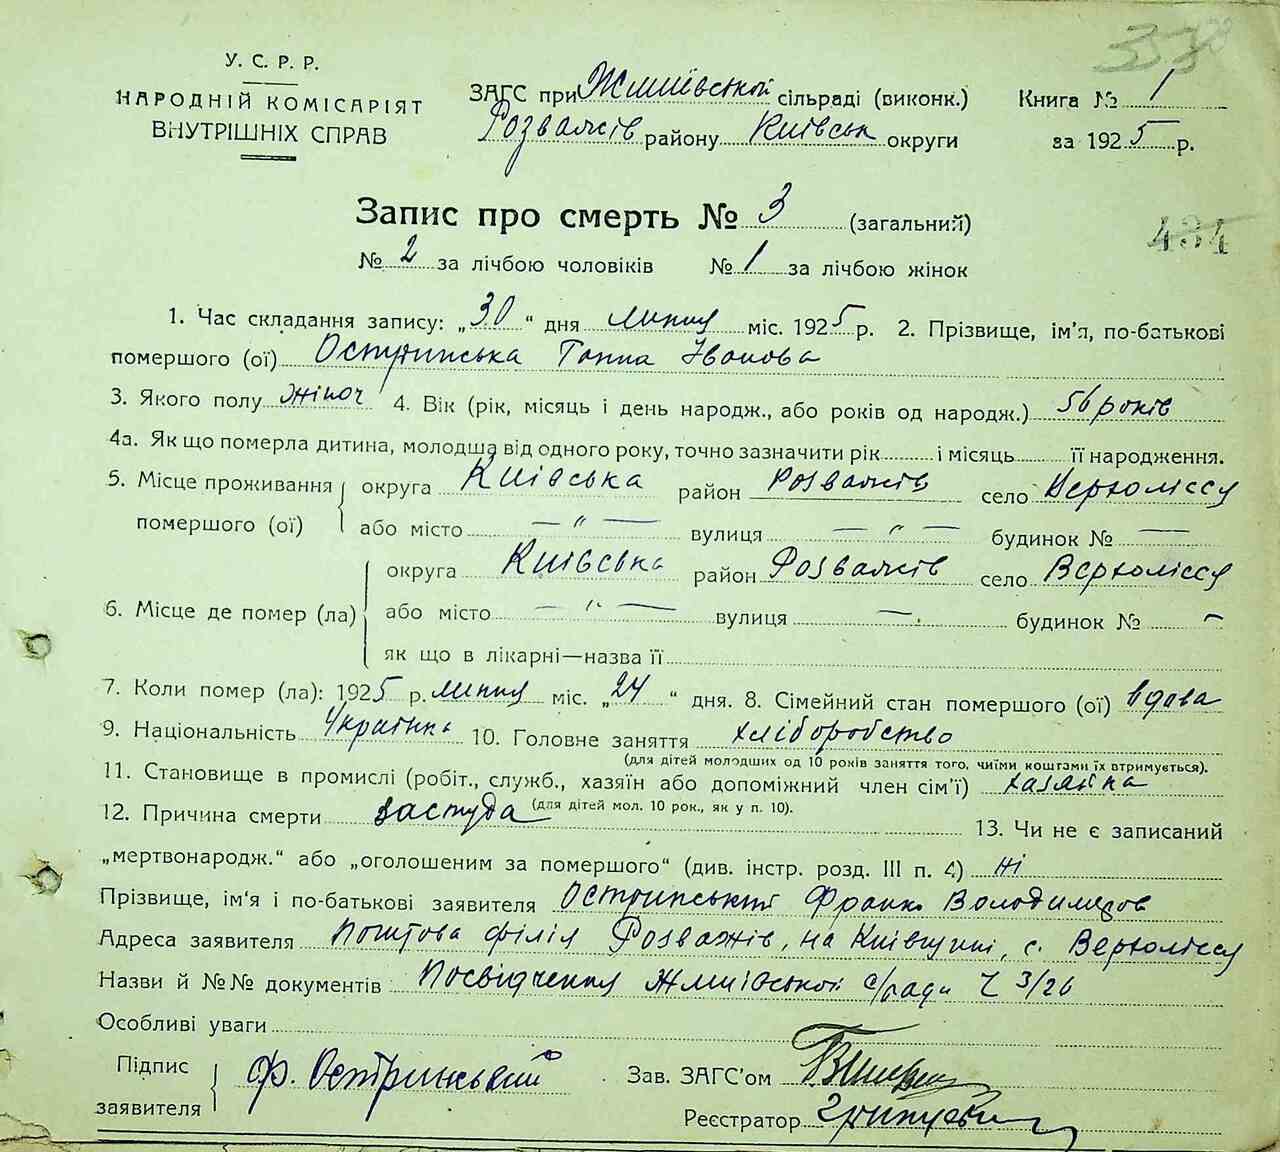 У. С. Р. Р.
НАРОДНІЙ КОМІСАРІЯТ
ВНУТРІШНІХ СПРАВ
ЗАГС при Жміївськой сільраді (виконк.)
Розважів району Київськ округи
Книга № 1
за 1925 р.
358
Запис про смерть № 3 (загальний)
434
№ 2 за лічбою чоловіків № 1 за лічбою жінок
1. Час складання запису: „30“ дня липня міс. 1925 р. 2. Прізвище, ім'я, по-батькові
помершого (ої) Остринська Ганна Іванова
3. Якого полу жіноч 4. Вік (рік, місяць і день народж., або років од народж.) 56 років
4а. Як що померла дитина, молодша від одного року, точно зазначити рік і місяць її народження.
5. Місце проживання помершого (ої) округа Київська район Розважів село Верхолісся
або місто — „ — вулиця — „ — будинок № —
6. Місце де помер (ла) округа Київська район Розважів село Верхолісся
або місто — „ — вулиця — будинок № —
як що в лікарні—назва її
7. Коли помер (ла): 1925 р. липня міс. „24“ дня. 8. Сімейний стан помершого (ої) вдова
9. Національність Українка 10. Головне заняття хліборобство
(для дітей молодших од 10 років заняття того, чиїми коштами їх втримується).
11. Становище в промислі (робіт., служб., хазяїн або допоміжний член сім'ї) хазяйка
(для дітей мол. 10 рок., як у п. 10).
12. Причина смерти застуда 13. Чи не є записаний
„мертвонародж.“ або „оголошеним за помершого“ (див. інстр. розд. III п. 4) ні
Прізвище, ім'я і по-батькові заявителя Остринський Франко Володимеров
Адреса заявителя Поштова філія Розважів, на Київщині, с. Верхолісся
Назви й №№ документів Посвідчення Жміївськой с/ради Ч 3/26
Особливі уваги
Підпис заявителя Ф. Остринський
Зав. ЗАГС'ом
Реєстратор